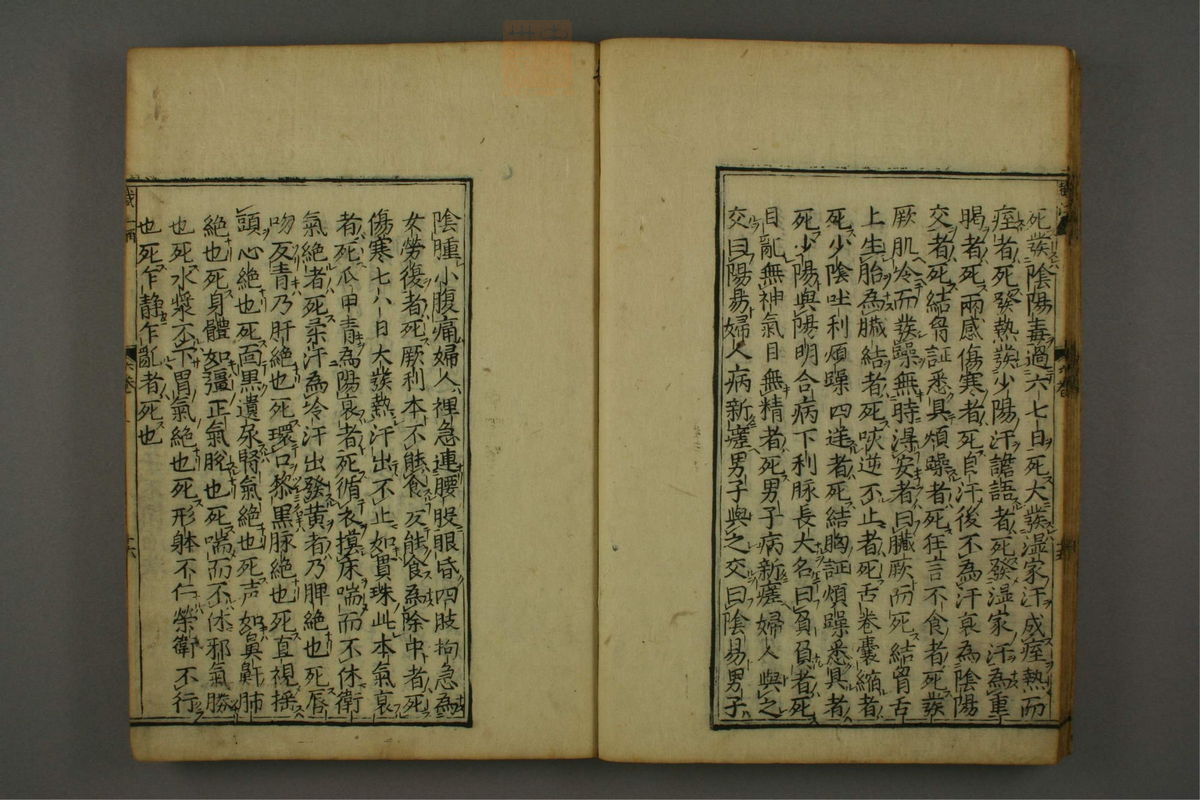 死發陰陽毒過六七日死大發湿家汗成痓熱而
痓者死發熱發少陽汗譫語者死發湿家汗為重
暍者死兩感傷寒者死自汗後不為汗衰為陰陽
交者死結胷証悉具煩躁者死狂言不食者死發
厥肌冷而發躁無時淂安者曰臓厥而死結胷舌
上生胎為臓結者死咳逆不止者死舌卷囊縮者
死少陰吐利煩躁四逆者死結胸証煩躁悉具者
死少陽與陽明合病下利脉長大名曰負負者死
目乱無神氣目無精者死男子病新瘥婦人與之
交曰陽易婦人病新瘥男子與之交曰陰易男子
陰腫小腹痛婦人裡急連腰股眼昏四肢拘急為
女勞復者死厥利本不能食反能食為除中者死
傷寒七八日大發熱汗出不止如貫珠此本氣衰
者死爪甲青為陽衰者死循衣摸床喘而不休衛
氣絶者死柔汗為冷汗出發黄者乃脾絶也死唇
吻反青乃肝絶也死環口黎黒脉絶也死直視揺
頭心絶也死面黒遺尿腎氣絶也死声如鼻鼾肺
絶也死身體如彊正氣脫也死喘而不休邪氣勝
也死水漿不下胃氣絶也死形躰不仁榮衛不行
也死乍静乍亂者死也